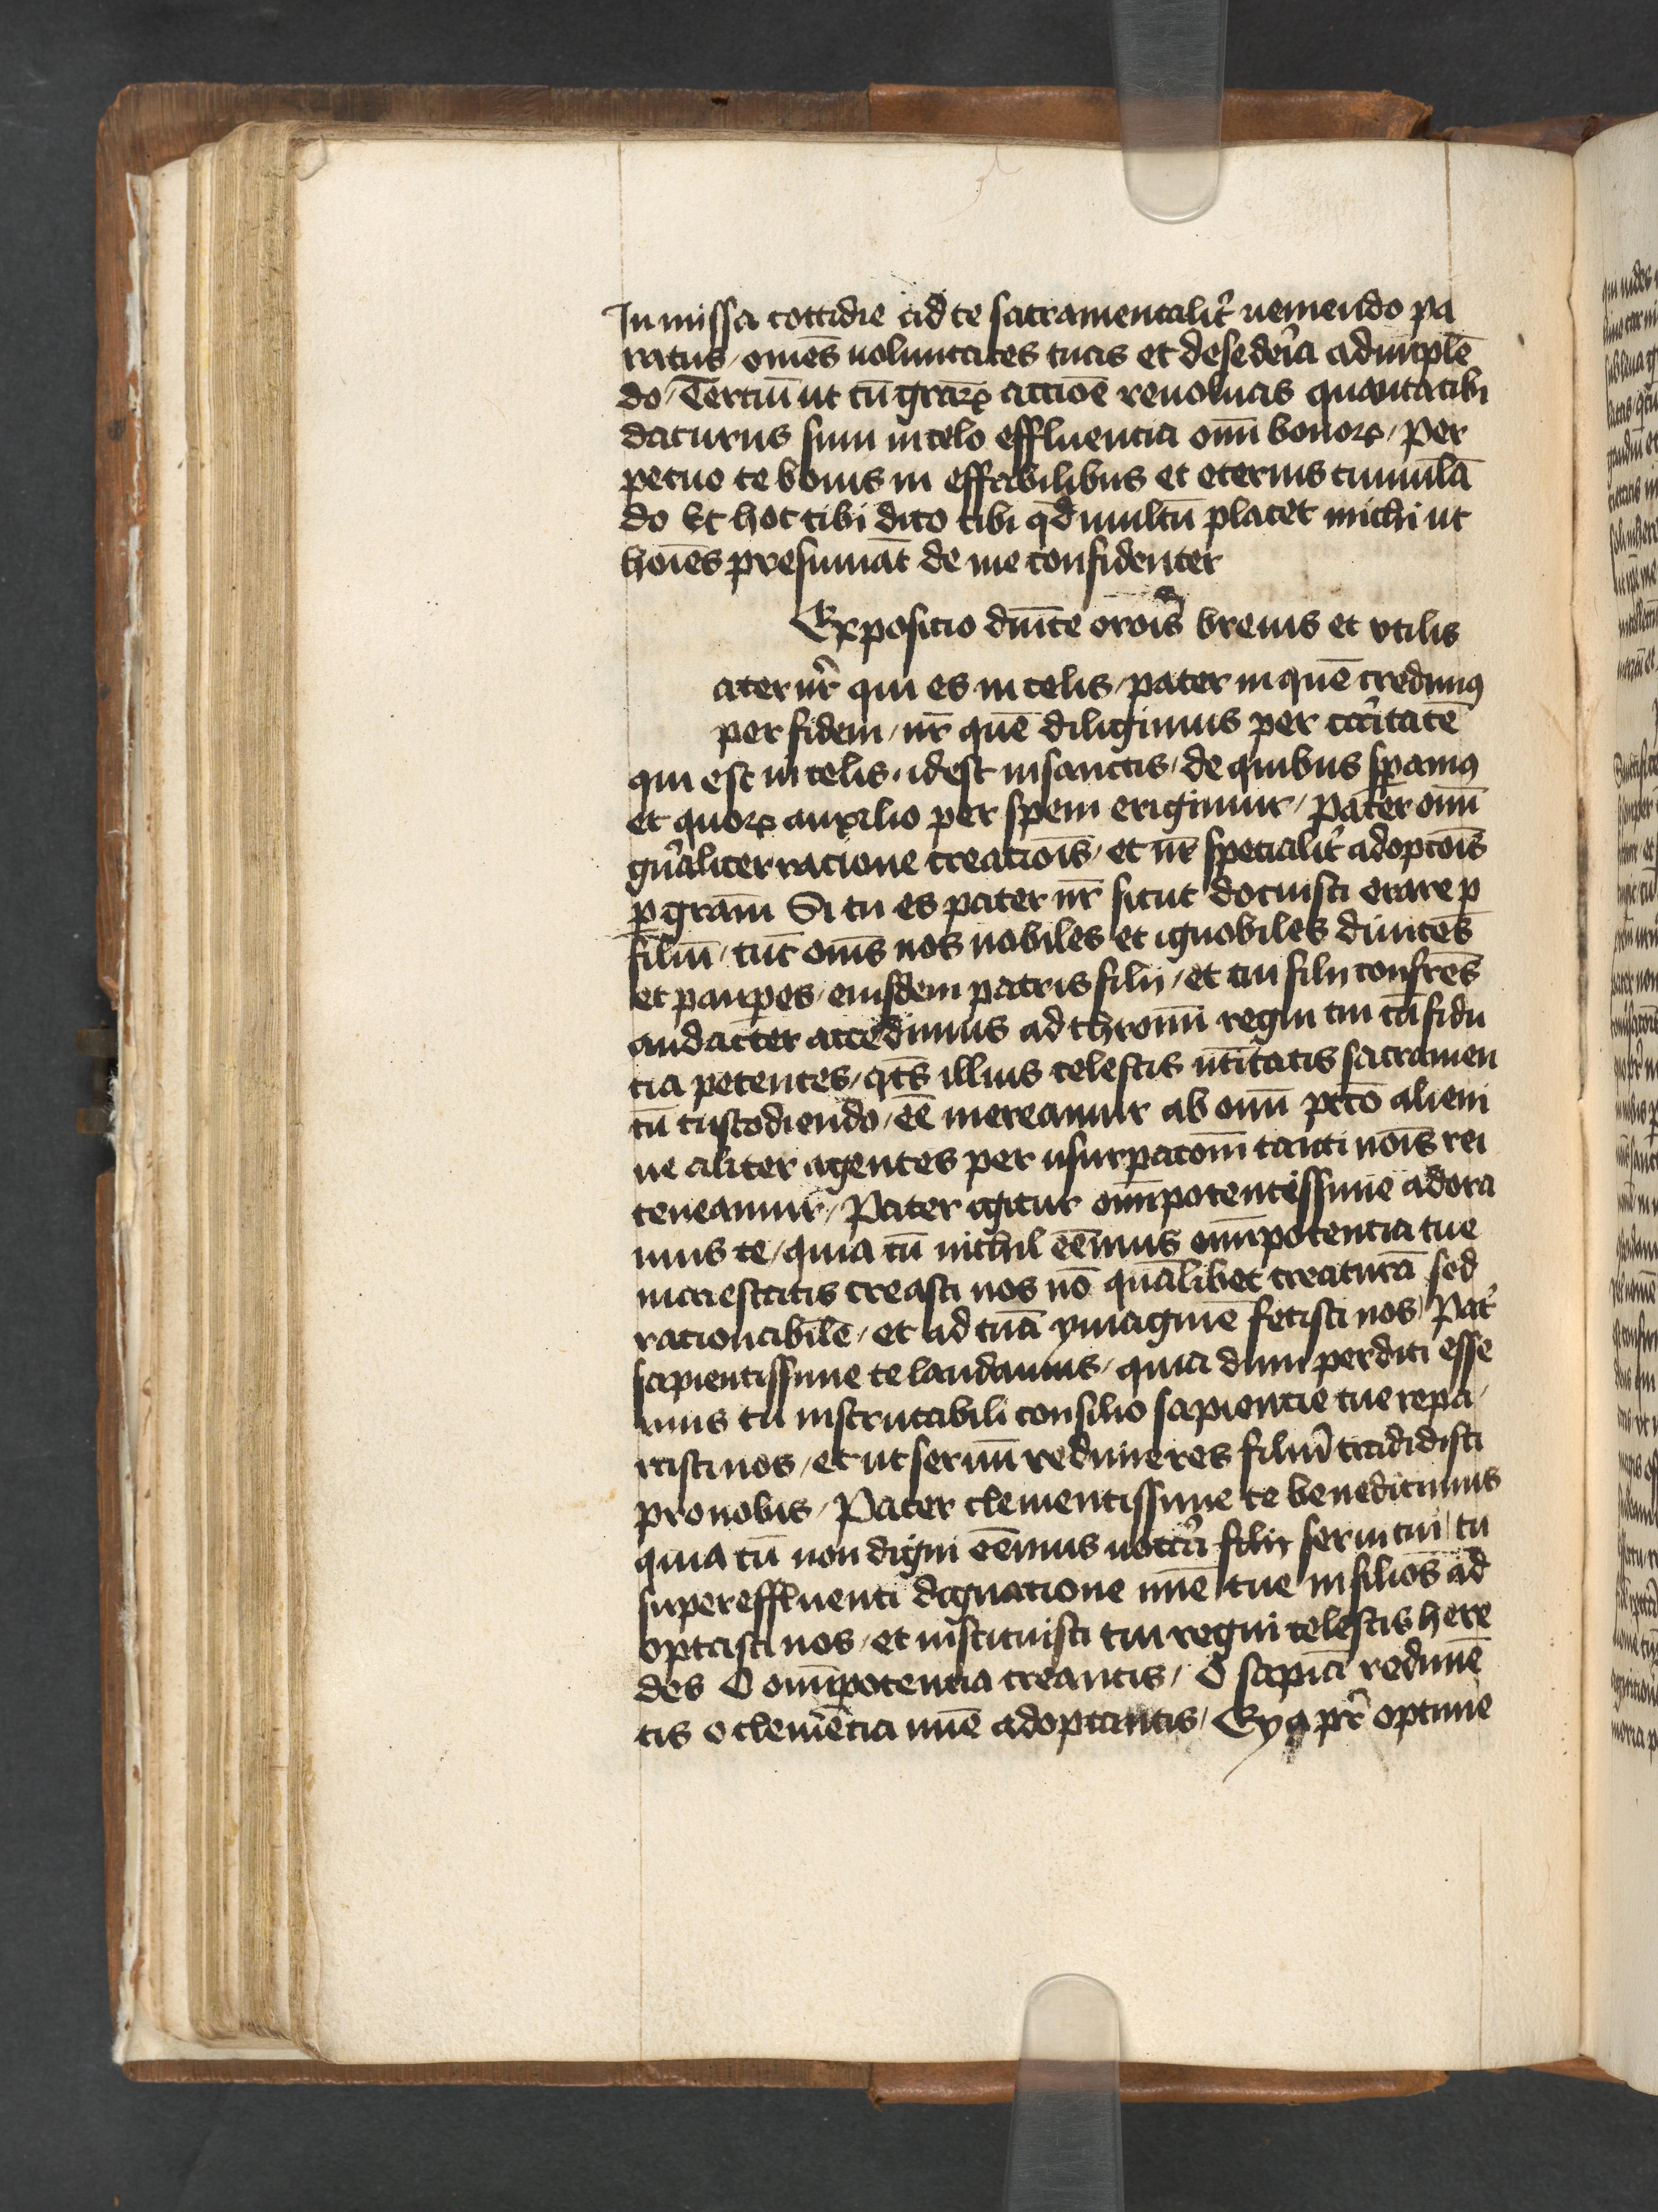 In missa cottidie ad te sacramentalit̉ ueniendo pa
ratus / om̄es uoluntates tuas et desederia adimplē
do / Terciū ut cū gr̄aꝝ accione reuoluas quanta tibi
daturus sum in celo effluencia om̄i bonoꝝ / per
petuo te bonis in effabilibus et eternis cumulā
do Et hoc tibi dico tibi qd̄ multū placet michi ut
hoīes presumāt de me confidenter
Expositio dnīce orōis breuis et vtilis
ater nr̄ qui es in celis / pater in quē credimꝰ
per fidem / nr̄ quē diligimus per caritatē
qui est in celis / id est in sanctis / de quibus speramꝰ
et quoꝝ auxilio per spem erigimur / pater om̄i
gn̄aliter racione creatiōis / et nr̄ specialit̉ adopcōis
ꝑ gr̄am Si tu es pater nr̄ sicut docuisti orare ꝑ
filiū / tūc om̄s nos nobiles et ignobiles diuites
et pauꝑes / eiusdem patris filii / et tui filii confr̄es
audacter accedimus ad thronū regni tui cū fidu
cia petentes / qt̄s illius celestis ūtitatis sacramen
tū custodiendo / eē mereamur ab om̄i pctō alieni
ne aliter agentes per usurpacōm tanti noīs rei
teneamur / Pater igitur om̄ipotentissime adora
mus te / quia cū nichil eēmus om̄ipotencia tue
maiestatis creasti nos nō quālibet creaturā sed
rationabilē / et ad tuā ymaginē fecisti nos / Pat̉
sapientissime te laudamus / quia dum perditi esse
mus tu inscrutabili consilio sapiencie tue repa /
rasti nos / et ut seruū redimeres filiū tradidisti
pro nobis / Pater clementissime te benedicimus
quia cū non digni eēmus uocari filii serui tui / tu
supereffluenti dignatione mīe tue in filios ad
optasti nos / et instituisti tui regni celestis here
des O om̄ipotencia creantis / O sapīa redimē
tis o clemēcia mīe adoptantis / Eya pr̄ optime